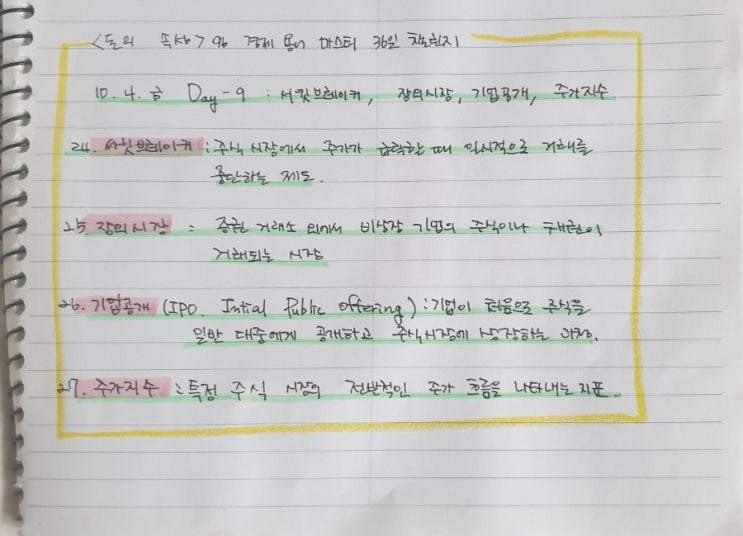 <돈의 속성> 96 경제 용어 마스터 36일 챌린지
10. 4. 금 Day-9 : 서킷브레이커, 장외시장, 기업공개, 주가지수
24. 서킷브레이커 : 주식 시장에서 주가가 급락할 때 일시적으로 거래를
중단하는 제도.
25 장외시장 : 증권 거래소 밖에서 비상장 기업의 주식이나 채권이
거래되는 시장
26. 기업공개 (IPO. Intial Public Offering) : 기업이 처음으로 주식을
일반 대중에게 공개하고 주식시장에 상장하는 과정.
27. 주가지수 : 특정 주식 시장의 전반적인 주가 흐름을 나타내는 지표.